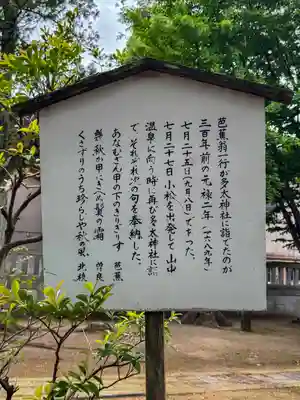 芭蕉翁一行が多太神社に詣でたのが
三百年前の元禄二年（一六八九年）
七月二十五日（九月八日）であった。
七月二十七日小松を出発して山中
温泉に向う時に再び多太神社に詣
で、それぞれ次の句を奉納した。
あなむざん甲の下のきりぎりす 芭蕉
幾秋か甲にきへぬ鬢の霜 曽良
くさずりのうち珍らしや秋の風 北枝